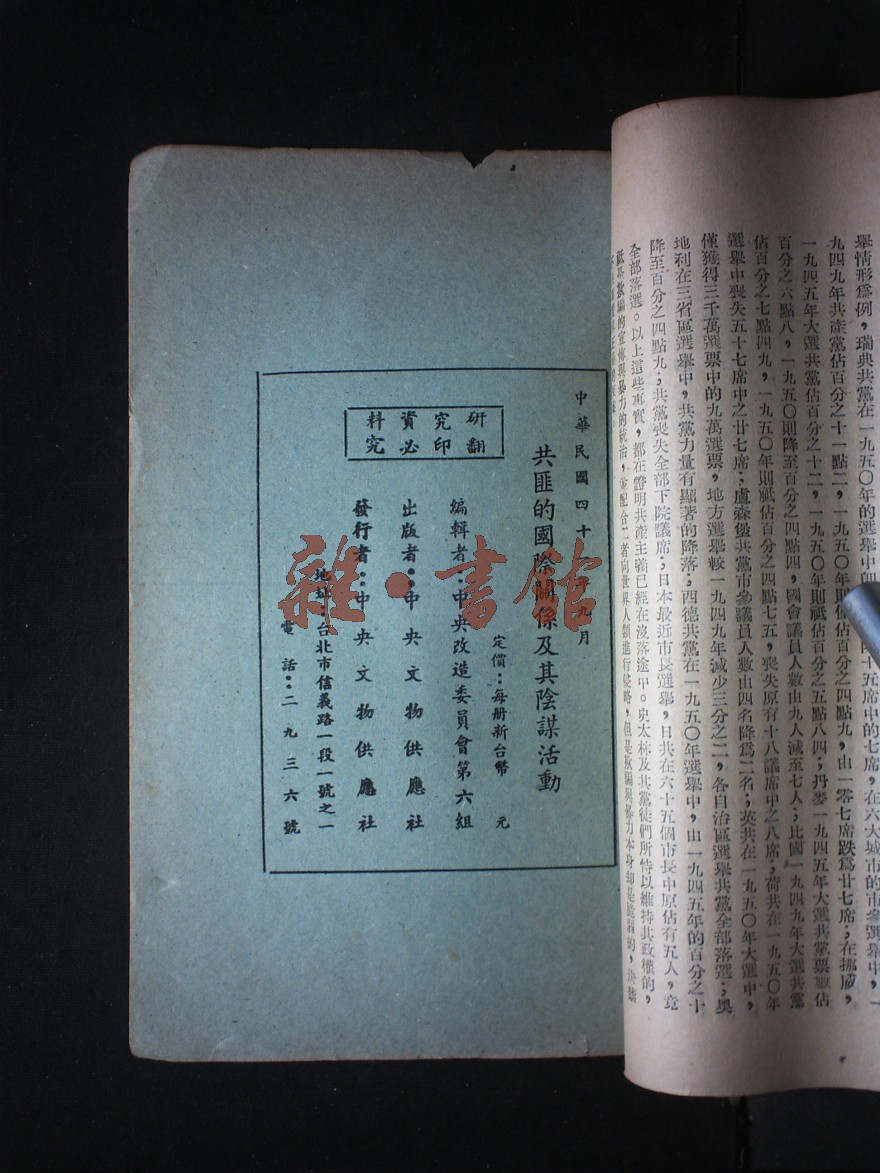 舉情形爲例，瑞典共黨在一九五〇年的選舉中 十五席中的七席，在六大城市的市參選舉中，一
九四九年共產黨佔百分之十一點二，一九五〇年則僅佔百分之四點九，由一零七席跌爲廿七席；在挪威，
一九四五年大選共黨佔百分之十二，一九五〇年則祇佔百分之五點八四；丹麥一九四五年大選共黨票數佔
百分之六點八，一九五〇則降至百分之四點四，國會議員人數由九人減至七人；比國一九四九年大選共黨
佔百分之七點四九，一九五〇年則祇佔百分之四點七五，喪失原有十八議席中之八席；荷共在一九五〇年
選舉中喪失五十七席中之廿七席；盧森堡共黨市參議員人數由四名降爲二名；英共在一九五〇年大選中，
僅獲得三千萬選票中的九萬選票，地方選舉較一九四九年減少三分之二，各自治區選舉共黨全部落選；奧
地利在三省區選舉中，共黨力量有顯著的降落；西德共黨在一九五〇年選舉中，由一九四五年的百分之十
降至百分之四點九；共黨喪失全部下院議席；日本最近市長選舉，日共在六十五個市長中原佔有五人，竟
全部落選。以上這些事實，都在證明共產主義已經在沒落途中。史太林及其黨徒們所恃以維持其政權的，
祇是欺騙的宣傳與暴力的統治，並配合二者向世界人類進行侵略，但是欺騙與暴力本身却是脆弱的，決禁
中華民國四十 九月
共匪的國際關係及其陰謀活動
定價：每册新台幣　元
編輯者：中央改造委員會第六組
出版者：中央文物供應社
發行者：中央文物供應社
地址：台北市信義路一段一號之一
電話：二九三六號
研究資料
翻印必究
雜·書館